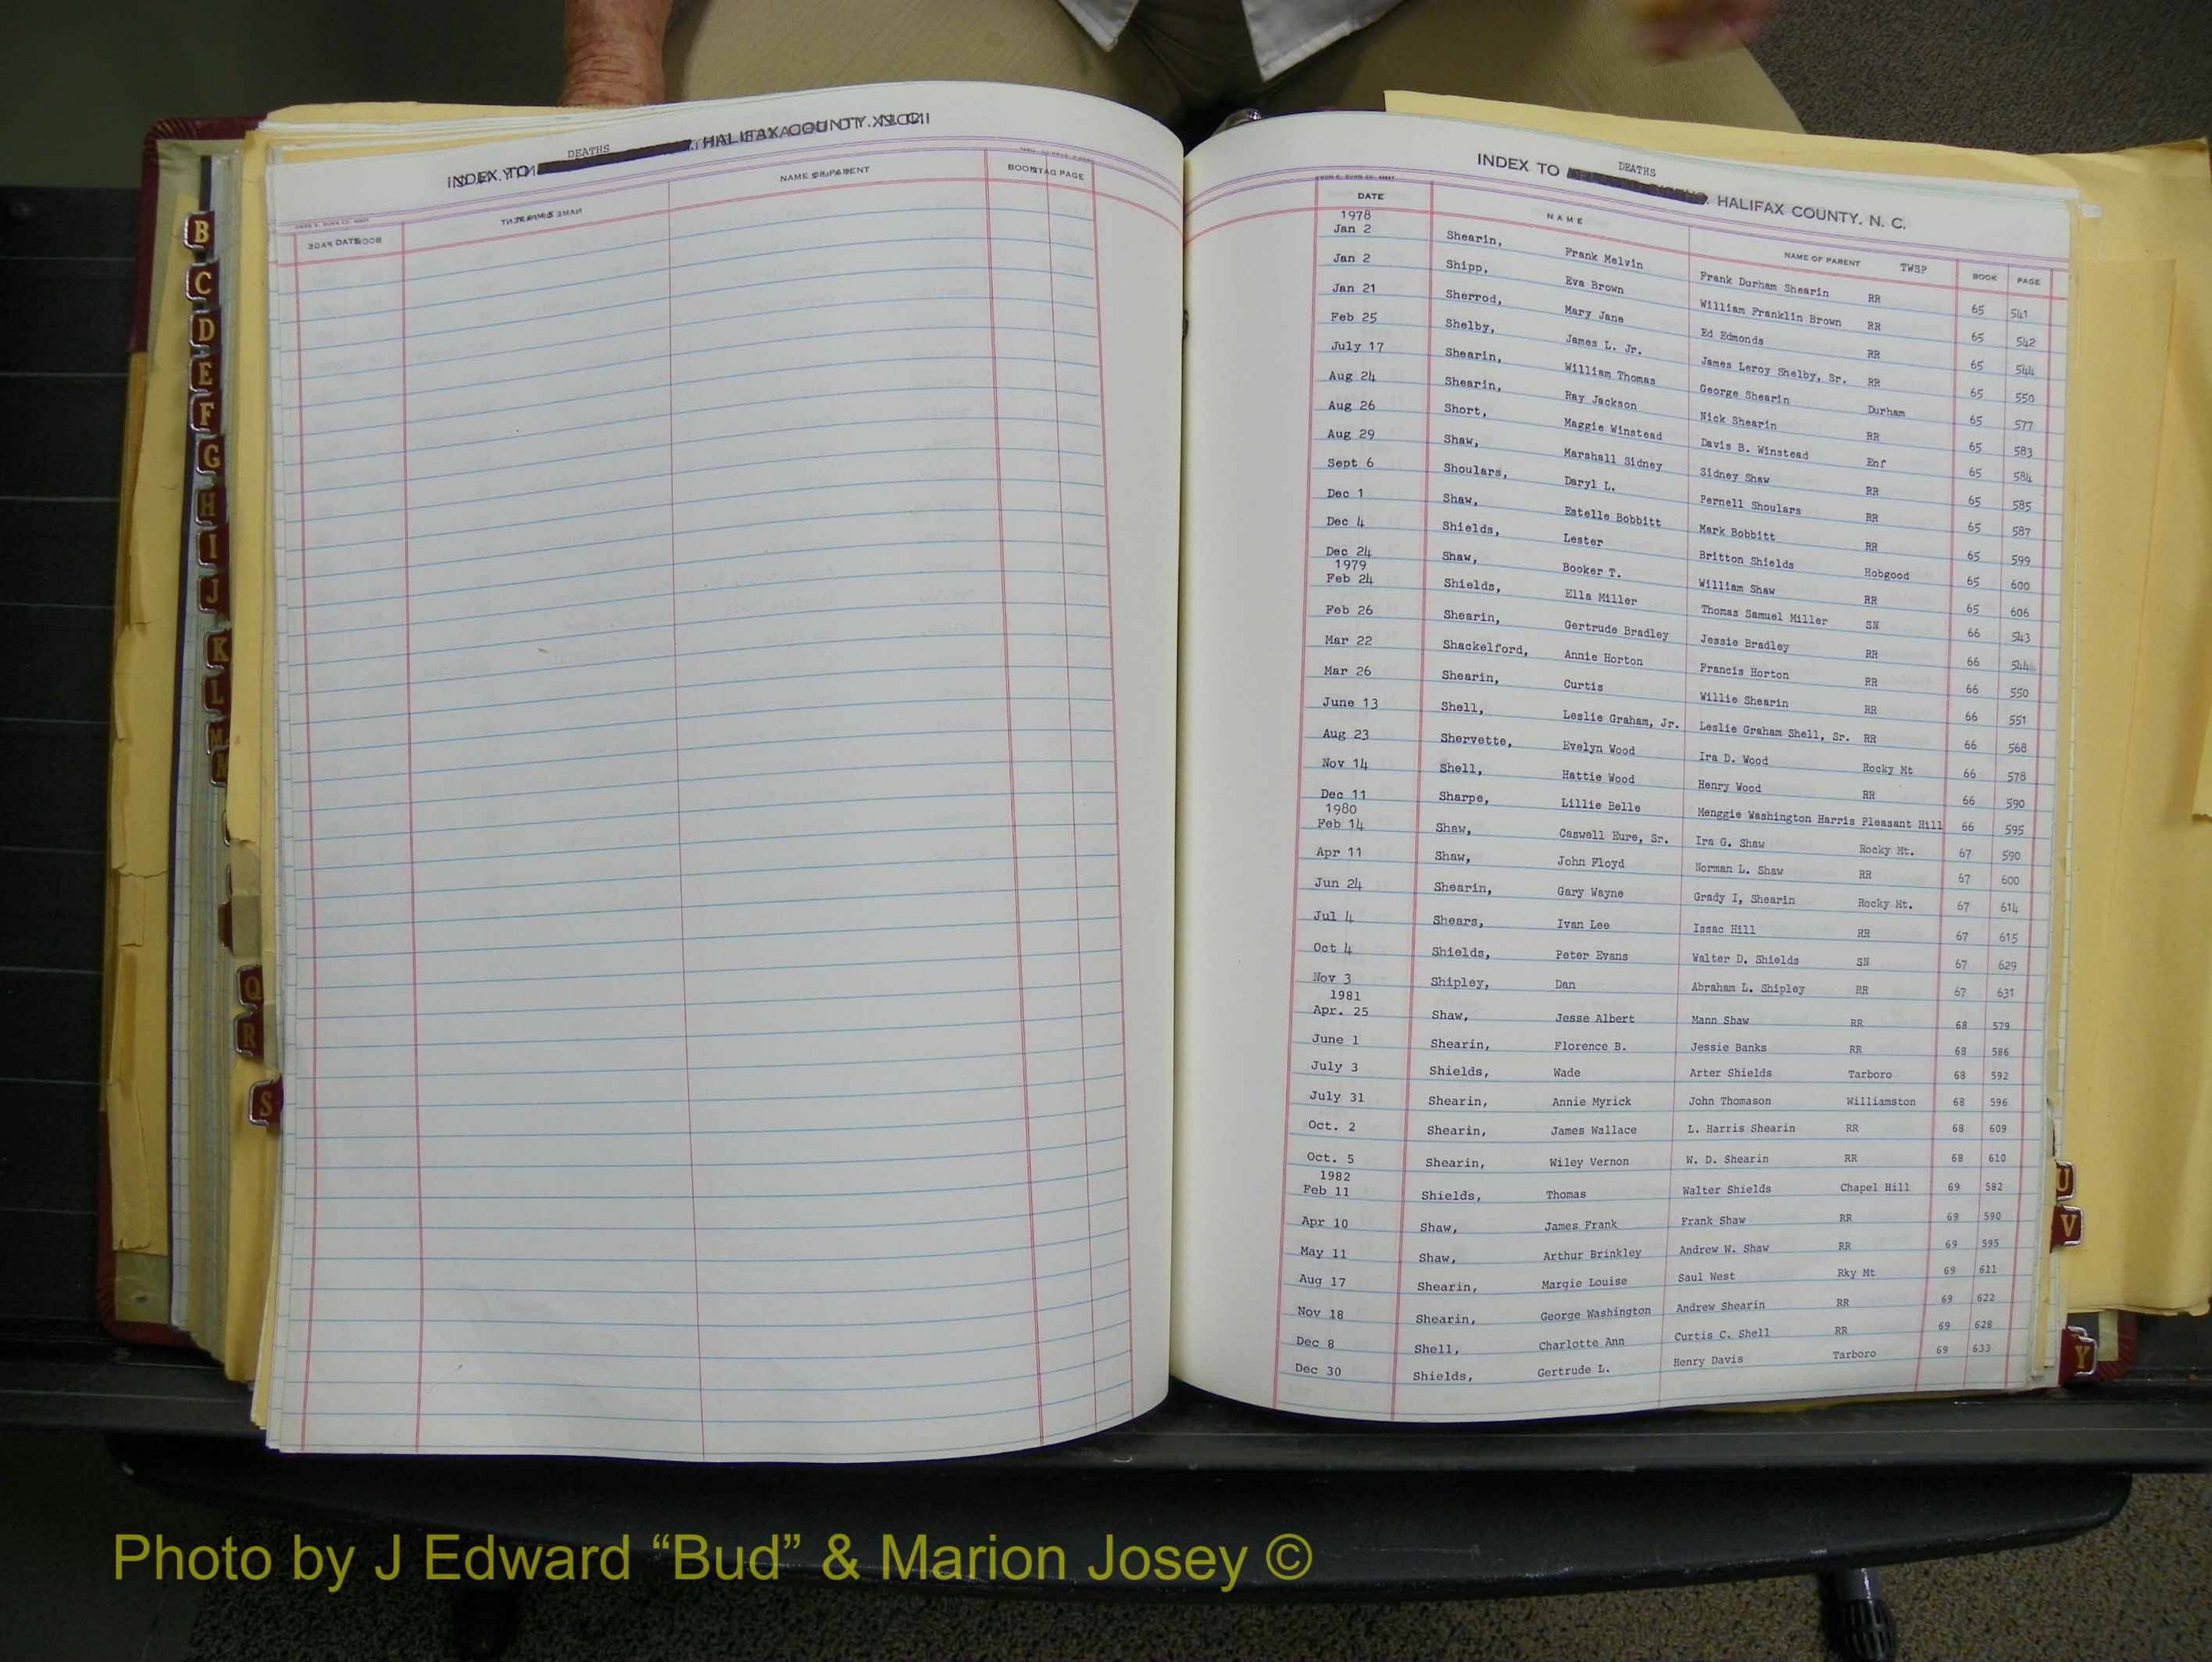 DEATHS
INDEX TO HALIFAX COUNTY. N. C.
NAME OF PARENT BOOK PAGE
DATE
B
C
D
E
F
G
H
I
J
K
L
M
Q
R
S
DEATHS
INDEX TO HALIFAX COUNTY. N. C.
DATE NAME NAME OF PARENT TWSP BOOK PAGE
1978
Jan 2 Shearin, Frank Melvin Frank Durham Shearin RR 65 541
Jan 2 Shipp, Eva Brown William Franklin Brown RR 65 542
Jan 21 Sherrod, Mary Jane Ed Edmonds RR 65 544
Feb 25 Shelby, James L. Jr. James Leroy Shelby, Sr. RR 65 550
July 17 Shearin, William Thomas George Shearin Durham 65 577
Aug 24 Shearin, Ray Jackson Nick Shearin RR 65 583
Aug 26 Short, Maggie Winstead Davis B. Winstead Enf 65 584
Aug 29 Shaw, Marshall Sidney Sidney Shaw RR 65 585
Sept 6 Shoulars, Daryl L. Pernell Shoulars RR 65 587
Dec 1 Shaw, Estelle Bobbitt Mark Bobbitt RR 65 599
Dec 4 Shields, Lester Britton Shields Hobgood 65 600
Dec 24 Shaw, Booker T. William Shaw RR 65 606
1979
Feb 24 Shields, Ella Miller Thomas Samuel Miller SN 66 543
Feb 26 Shearin, Gertrude Bradley Jessie Bradley RR 66 544
Mar 22 Shackelford, Annie Horton Francis Horton RR 66 550
Mar 26 Shearin, Curtis Willie Shearin RR 66 551
June 13 Shell, Leslie Graham, Jr. Leslie Graham Shell, Sr. RR 66 568
Aug 23 Shervette, Evelyn Wood Ira D. Wood Rocky Mt 66 578
Nov 14 Shell, Hattie Wood Henry Wood RR 66 590
Dec 11 Sharpe, Lillie Belle Menggie Washington Harris Pleasant Hill 66 595
1980
Feb 14 Shaw, Caswell Eure, Sr. Ira G. Shaw Rocky Mt. 67 590
Apr 11 Shaw, John Floyd Norman L. Shaw RR 67 600
Jun 24 Shearin, Gary Wayne Grady I, Shearin Rocky Mt. 67 614
Jul 4 Shears, Ivan Lee Issac Hill RR 67 615
Oct 4 Shields, Peter Evans Walter D. Shields SN 67 629
Nov 3 Shipley, Dan Abraham L. Shipley RR 67 631
1981
Apr. 25 Shaw, Jesse Albert Mann Shaw RR 68 579
June 1 Shearin, Florence B. Jessie Banks RR 68 586
July 3 Shields, Wade Arter Shields Tarboro 68 592
July 31 Shearin, Annie Myrick John Thomason Williamston 68 596
Oct. 2 Shearin, James Wallace L. Harris Shearin RR 68 609
Oct. 5 Shearin, Wiley Vernon W. D. Shearin RR 68 610
1982
Feb 11 Shields, Thomas Walter Shields Chapel Hill 69 582
Apr 10 Shaw, James Frank Frank Shaw RR 69 590
May 11 Shaw, Arthur Brinkley Andrew W. Shaw RR 69 595
Aug 17 Shearin, Margie Louise Saul West Rky Mt 69 611
Nov 18 Shearin, George Washington Andrew Shearin RR 69 622
Dec 8 Shell, Charlotte Ann Curtis C. Shell RR 69 628
Dec 30 Shields, Gertrude L. Henry Davis Tarboro 69 633
U
V
Y
Photo by J Edward “Bud” & Marion Josey ©